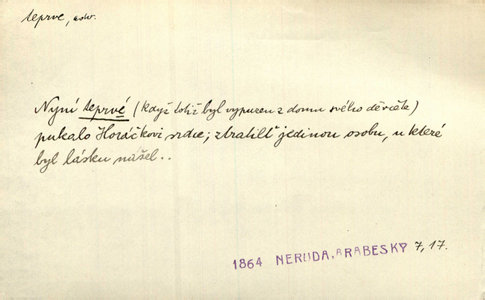 teprve, adv.
Nyní teprvé (když totiž byl vypuzen z domu svého děvčete)
pukalo Horáčkovi srdce; ztratilť jedinou osobu, u které
byl lásku našel..
1864 NERUDA, ARABESKY 7, 17.